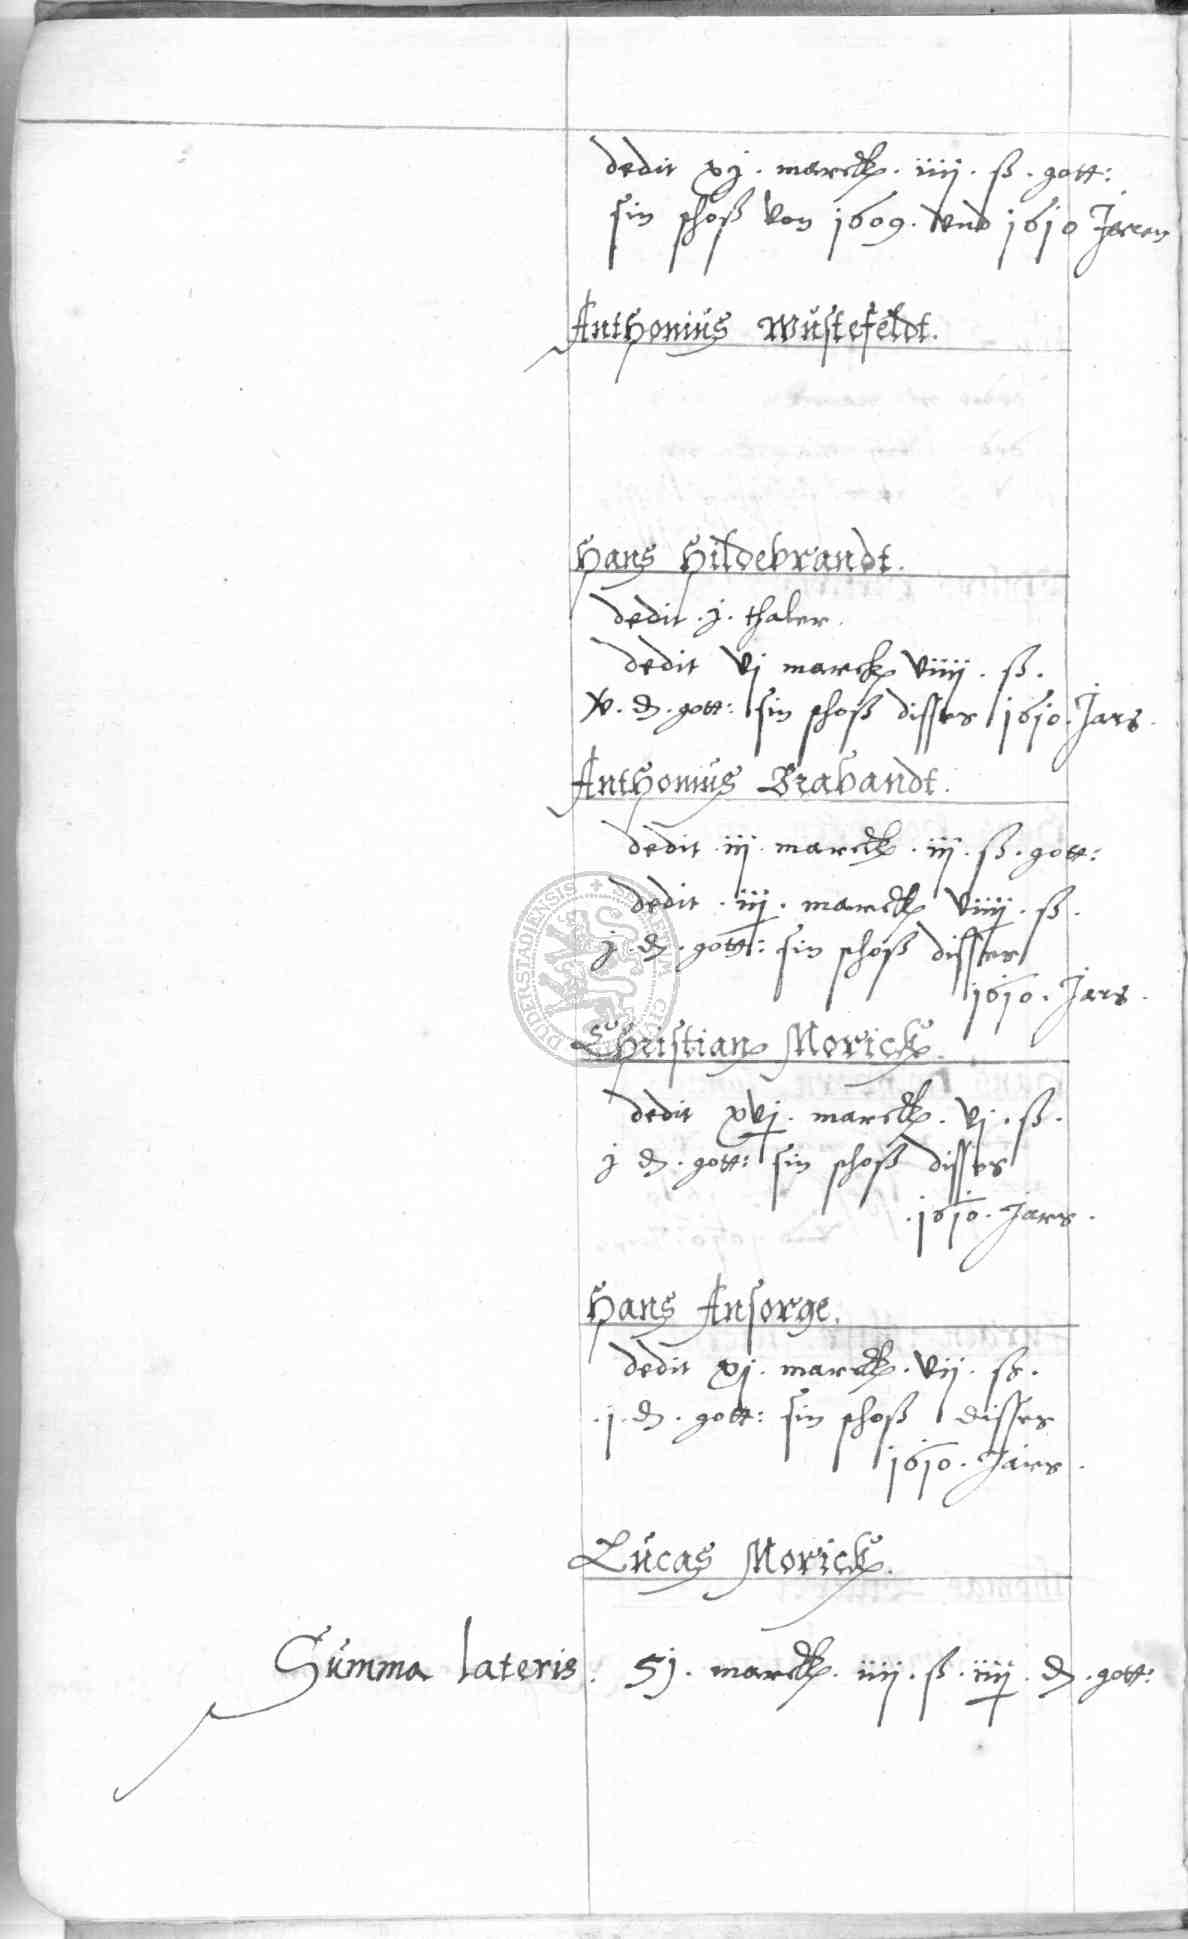 dedit xj. marck. iiij. ß. gott:
sin schoß von 1609. vnd 1610 Jaren
Anthonius Wüstefeldt.
Hans Hildebrandt.
dedit. j. thaler.
dedit vj marck viiij. ß.
xv. ₰. gott: sin schoß disses 1610. Jars.
Anthonius Brabandt.
dedit. iij. marck. iij. ß. gott:
dedit. iij. marck viiij. ß.
j. ₰. gott: sin schoß disses
1610. Jars.
Christian Morick.
dedit xvj. marck. vj. ß.
j ₰. gott: sin schoß disses
.1610. Jars.
Hans Ansorge.
dedit xj. marck. vij. ß.
.j. ₰. gott: sin schoß disses
1610. Jairs.
Lücas Morick.
Summa lateris. 51. marck. iiij. ß. iiij. ₰. gott:
DUDERSTADIENSIS